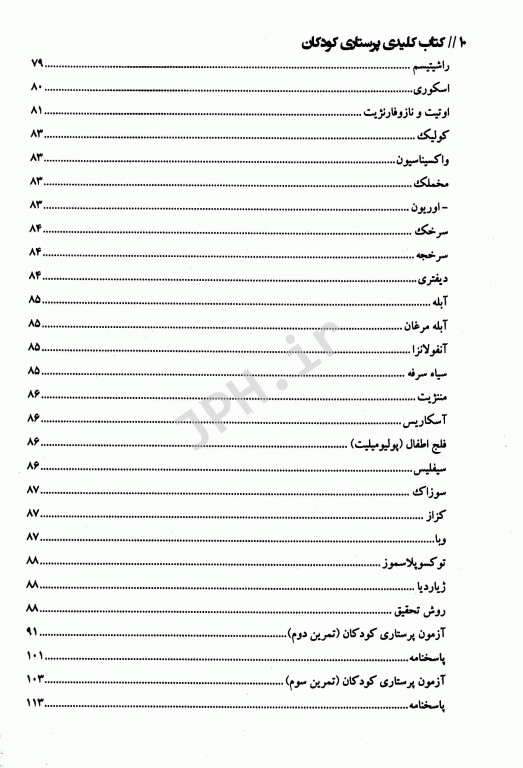 ۱۰ // کتاب کلیدی پرستاری کودکان
راشیتیسم ........ ۷۹
اسکوری ........ ۸۰
اوتیت و نازوفارنژیت ........ ۸۱
کولیک ........ ۸۳
واکسیناسیون ........ ۸۳
مخملک ........ ۸۳
- اوریون ........ ۸۳
سرخک ........ ۸۴
سرخجه ........ ۸۴
دیفتری ........ ۸۴
آبله ........ ۸۵
آبله مرغان ........ ۸۵
آنفولانزا ........ ۸۵
سیاه سرفه ........ ۸۵
مننژیت ........ ۸۶
آسکاریس ........ ۸۶
فلج اطفال (پولیومیلیت) ........ ۸۶
سیفلیس ........ ۸۶
سوزاک ........ ۸۷
کزاز ........ ۸۷
وبا ........ ۸۷
توکسوپلاسموز ........ ۸۸
ژیاردیا ........ ۸۸
روش تحقیق ........ ۸۸
آزمون پرستاری کودکان (تمرین دوم) ........ ۹۱
پاسخنامه ........ ۱۰۱
آزمون پرستاری کودکان (تمرین سوم) ........ ۱۰۳
پاسخنامه ........ ۱۱۳
JPH.ir